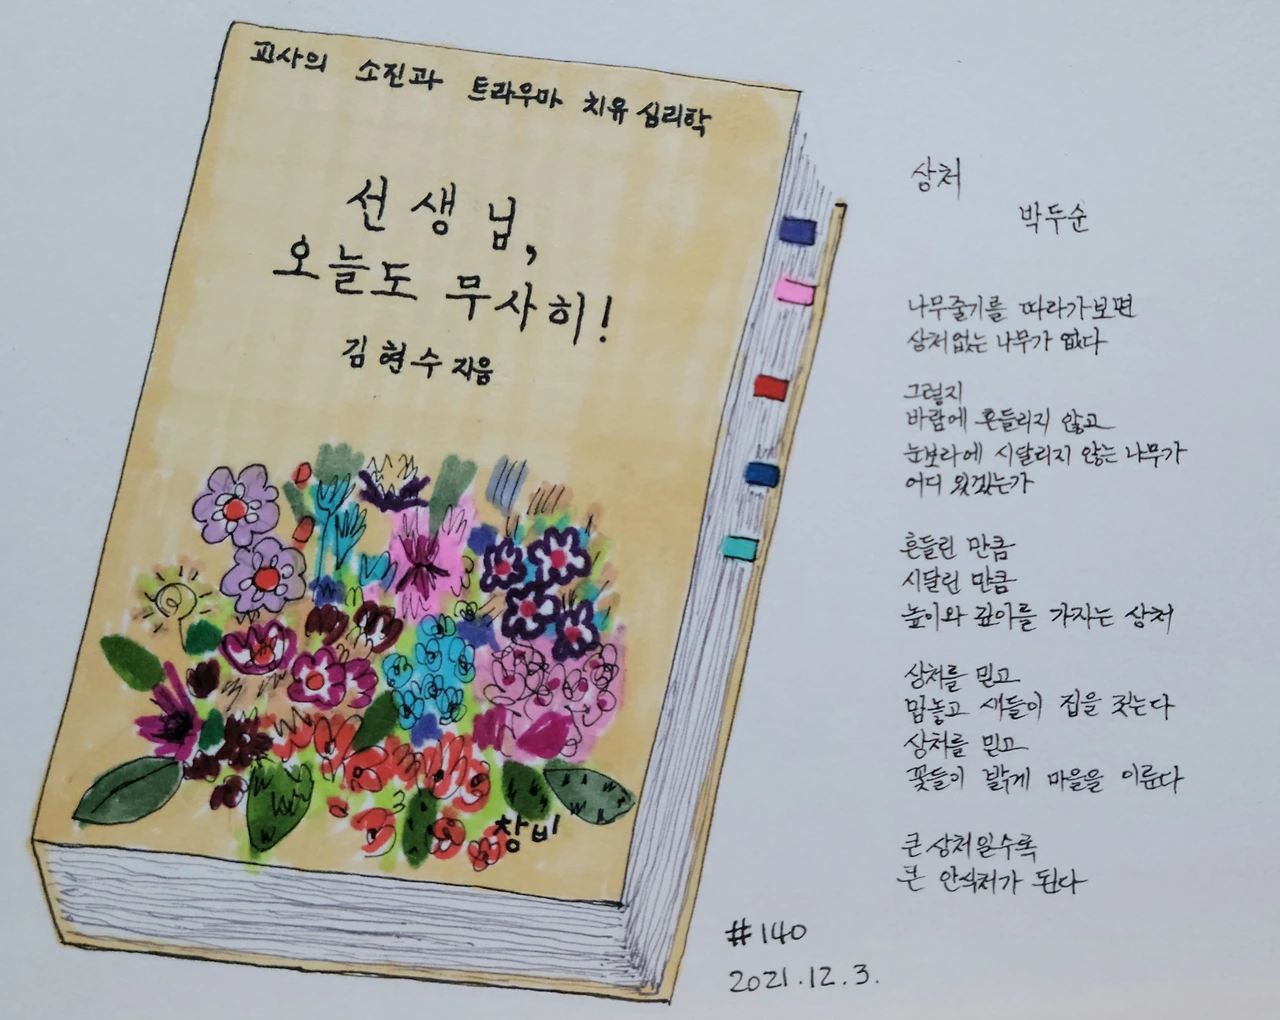 교사의 소진과 트라우마 치유 심리학
선생님,
오늘도 무사히!
김현수 지음
창비
상처
박두순
나무줄기를 따라가보면
상처없는 나무가 없다
그렇지
바람에 흔들리지 않고
눈보라에 시달리지 않는 나무가
어디 있겠는가
흔들린 만큼
시달린 만큼
높이와 깊이를 가지는 상처
상처를 믿고
맘놓고 새들이 집을 짓는다
상처를 믿고
꽃들이 밝게 마을을 이룬다
큰 상처일수록
큰 안식처가 된다
#140
2021.12.3.